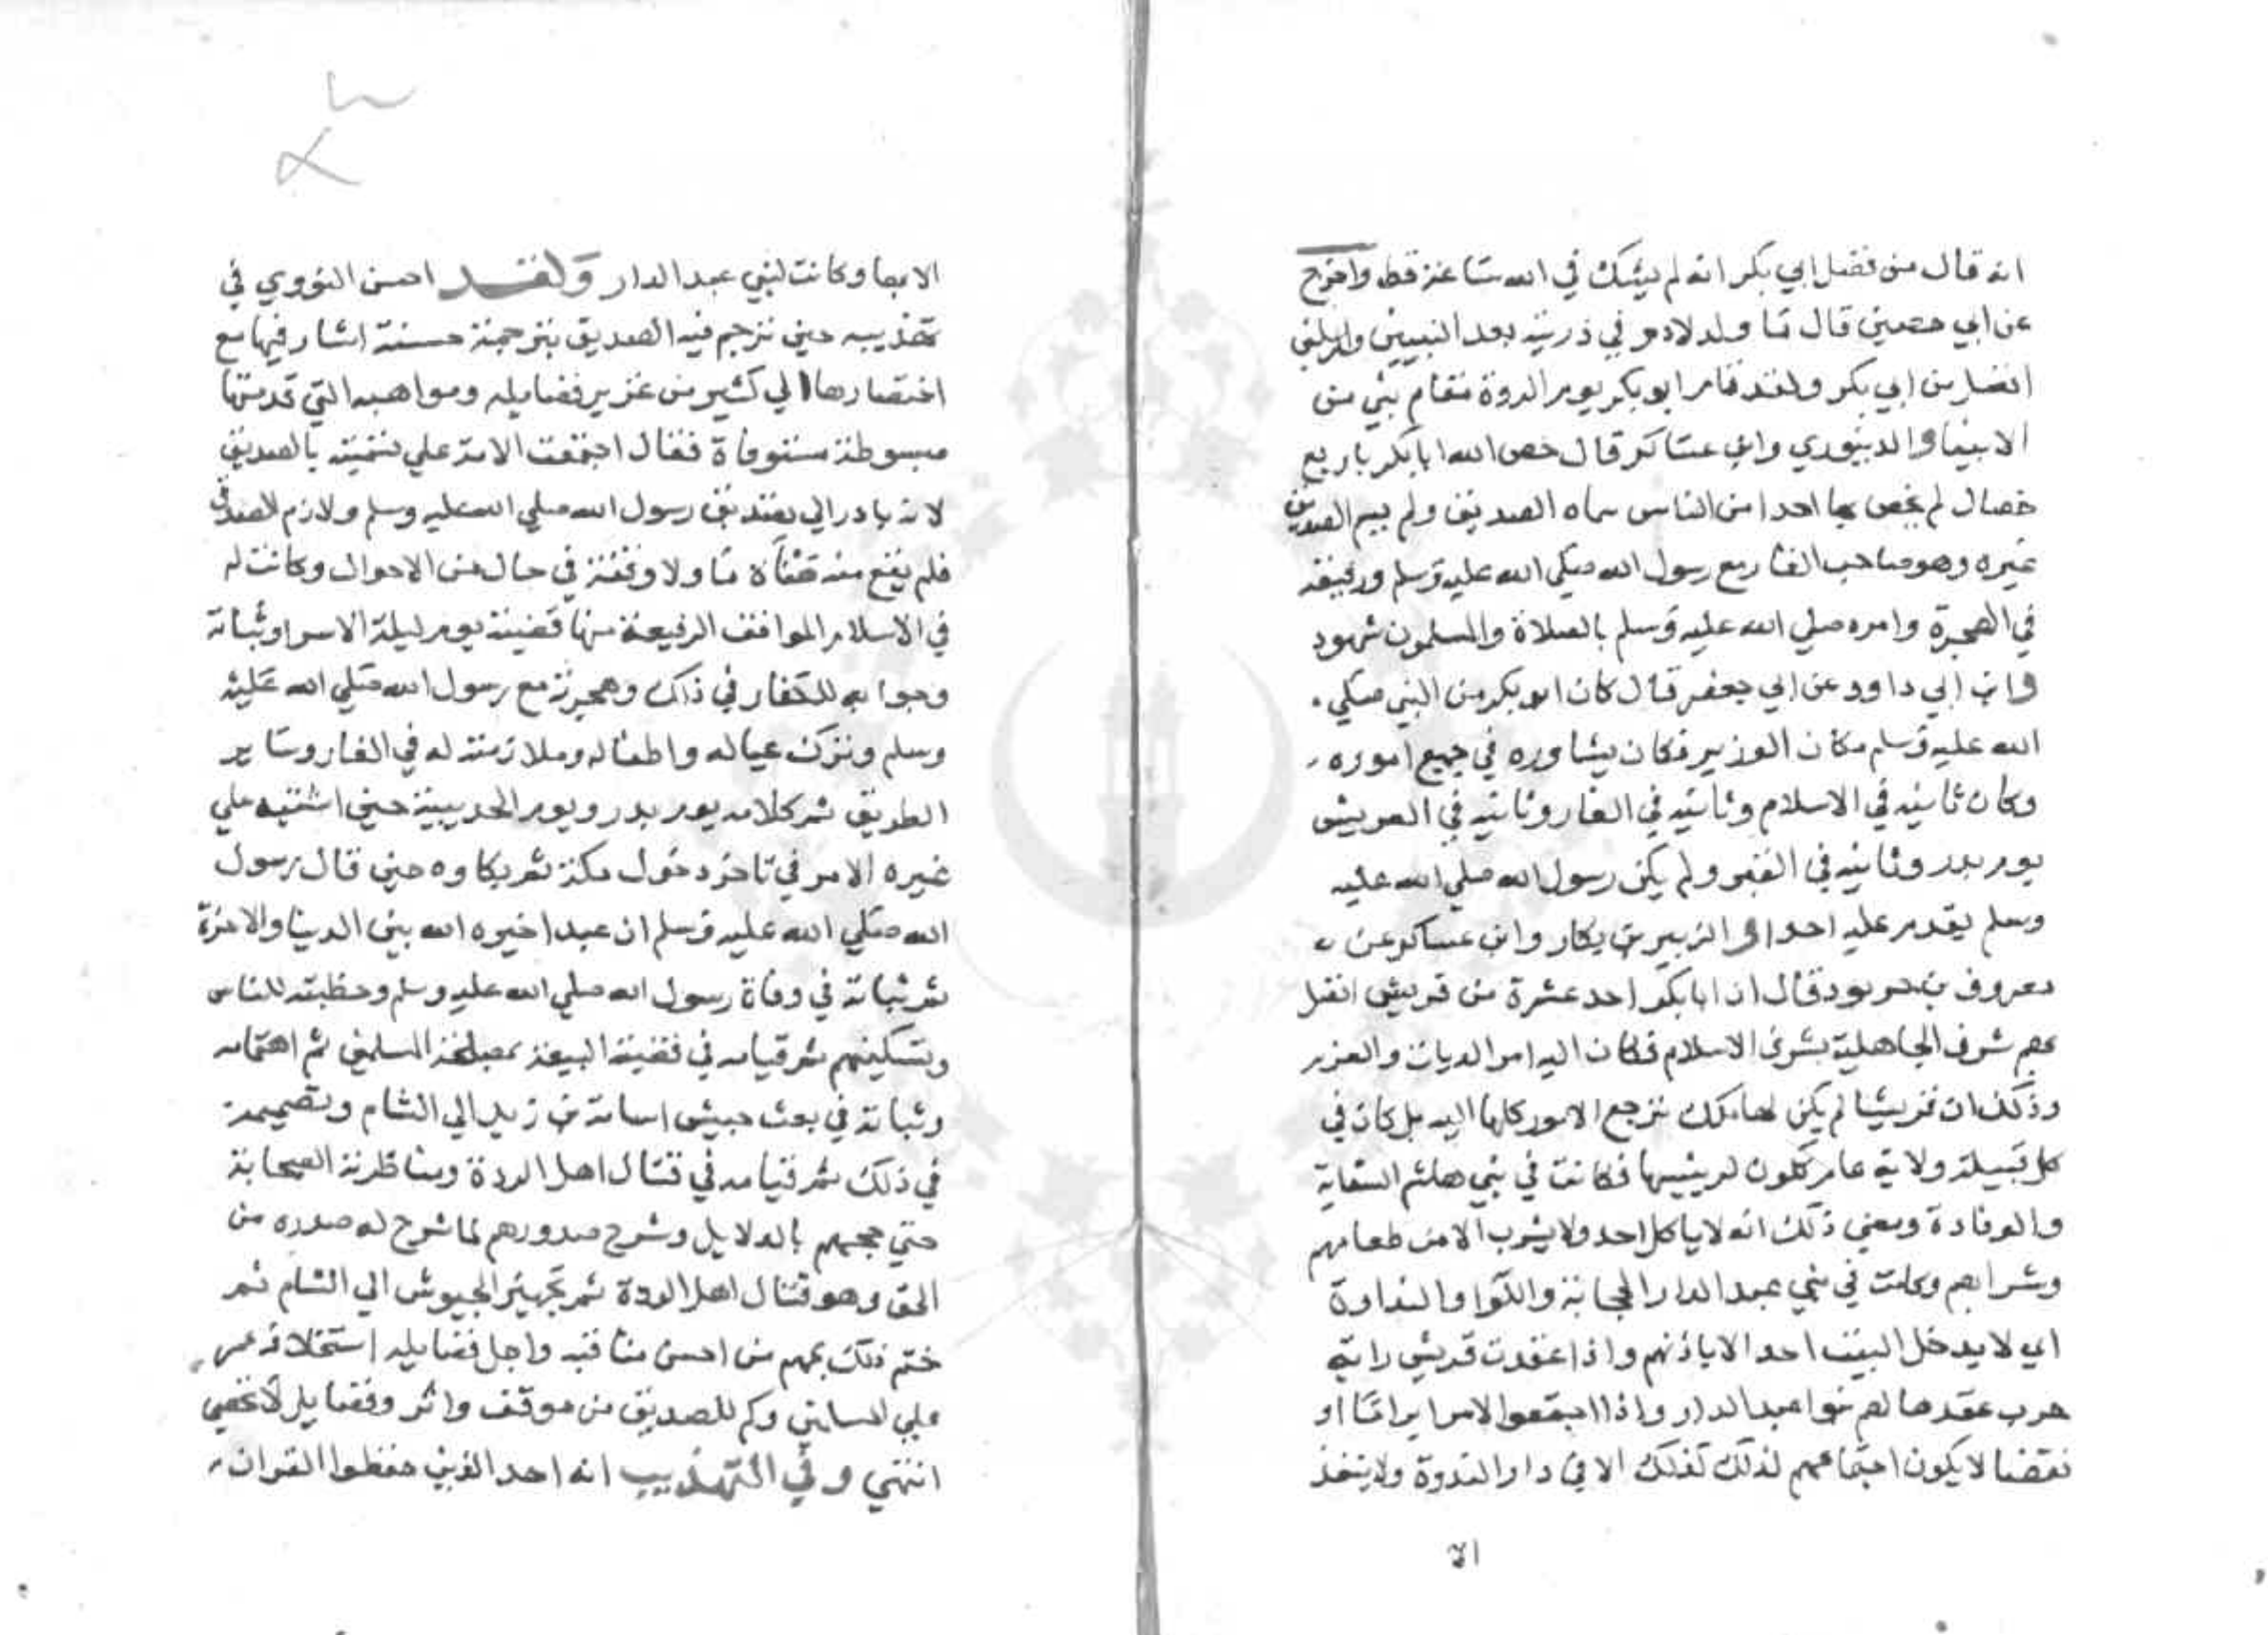 انه قال من فضل ابي بكر انه لم يشك في الله ساعة قط واخرج
عن ابي حصين قال ما ولد لادم في ذريته بعد النبيين والمرسلين
افضل من ابي بكر ولقد قام ابو بكر يوم الردة مقام نبي من
الانبيا والدينوري وابن عساكر قال خص الله ابا بكر باربع
خصال لم يخص بها احدا من الناس سماه الصديق ولم يسم الصديق
غيره وهو صاحب الغار مع رسول الله صلي الله عليه وسلم ورفيقه
في الهجرة وامره صلي الله عليه وسلم بالصلاة والمسلمون شهود
وابن ابي داود عن ابي جعفر قال كان ابو بكر من النبي صلي
الله عليه وسلم مكان الوزير فكان يشاوره في جميع اموره
وكان ثانيه في الاسلام وثانيه في الغار وثانيه في العريش
يوم بدر وثانيه في القبر ولم يكن رسول الله صلي الله عليه
وسلم يقدم عليه احدا والزبير بن بكار وابن عساكر عن
معروف بن خربوذ قال ان ابا بكر احد عشرة من قريش اتصل
بهم شرف الجاهلية بشرف الاسلام فكان اليه امر الديات والغرم
وذلك ان قريشا لم يكن لها ملك ترجع الامور كلها اليه بل كان في
كل قبيلة ولاية عامة تكون لرييسها فكانت في بني هاشم السقاية
والرفادة ومعني ذلك انه لا ياكل احد ولا يشرب الا من طعامهم
وشرابهم وكانت في بني عبد الدار الحجابة واللوا والندوة
اي لا يدخل البيت احد الا باذنهم واذا عقدت قريش راية
حرب عقدها لهم بنوا عبد الدار واذا اجتمعوا لامر ابراما او
نقضا لا يكون اجتماعهم لذلك كذلك الا في دار الندوة ولا ينفذ
الا
الا بها وكانت لبني عبد الدار ولقد احسن النووي في
تهذيبه حين ترجم فيه الصديق بترجمة حسنة اشار فيها مع
اختصارها الي كثير من غزير فضايله ومواهبه التي قدمتها
مبسوطة مستوفاة فقال اجتمعت الامة علي تسميته بالصديق
لانه بادر الي تصديق رسول الله صلي الله عليه وسلم ولازم الصدق
فلم يقع منه هناة ما ولا وقفة في حال من الاحوال وكانت له
في الاسلام المواقف الرفيعة منها قصية يوم ليلة الاسرا وثباته
وجوابه للكفار في ذلك وهجرته مع رسول الله صلي الله عليه
وسلم وترك عياله واطفاله وملازمته له في الغار وساير
الطريق ثم كلامه يوم بدر ويوم الحديبية حين اشتبه علي
غيره الامر في تاخر دخول مكة ثم بكاوه حين قال رسول
الله صلي الله عليه وسلم ان عبدا خيره الله بين الدنيا والاخرة
ثم ثباته في وفاة رسول الله صلي الله عليه وسلم وخطبته للناس
وتسكينهم ثم قيامه في قضية البيعة بمصلحة المسلمين ثم اهتمامه
وثباته في بعث جيش اسامة بن زيد الي الشام وتصميمه
في ذلك ثم قيامه في قتال اهل الردة ومناظرته الصحابة
حتي حججهم بالدلايل وشرح صدورهم لما شرح له صدره من
الحق وهو قتال اهل الردة ثم تجهيز الجيوش الي الشام ثم
ختم ذلك بمهم من احسن مناقبه واجل فضايله استخلافه عمر
علي المسلمين وكم للصديق من موقف واثر وفضايل لا تحصي
انتهي وفي التهذيب انه احد الذين حفظوا القران